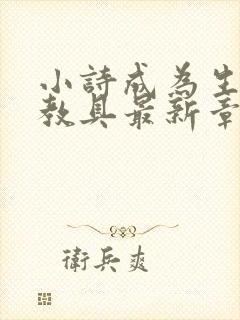 小詩成為生
教具最新章
衛兵爽